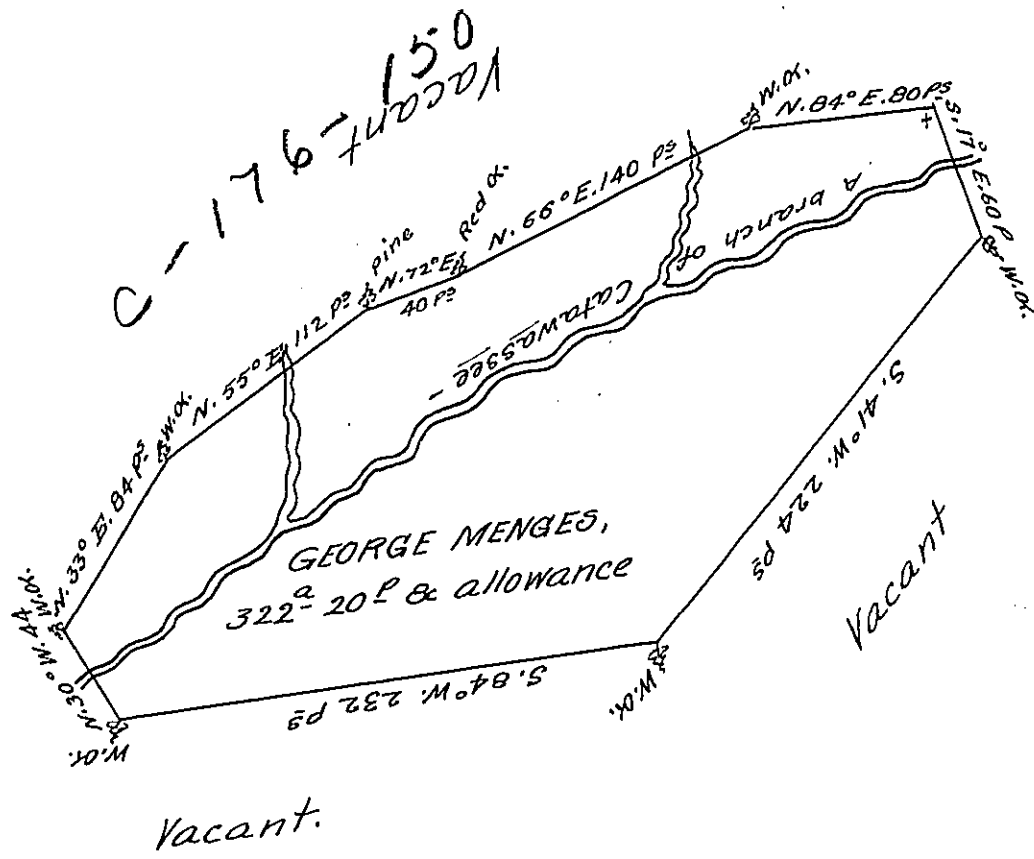 C-176-150
Vacant
W.O.
N.84°E.80 Ps
+
S.17°E.60P
W.O.
N.69°E.140 Ps
Red O.
N.72°E
40 Ps
pine
N.55°E.112 Ps
W.O.
N.33°E.84 Ps
W.O.
N.30°W.44
W.O.
A branch of
Catawassee -
GEORGE MENGES,
322a 20P & allowance
S.41°W. 224 Ps
Vacant
W.O.
S.84°W. 232 Ps
Vacant.